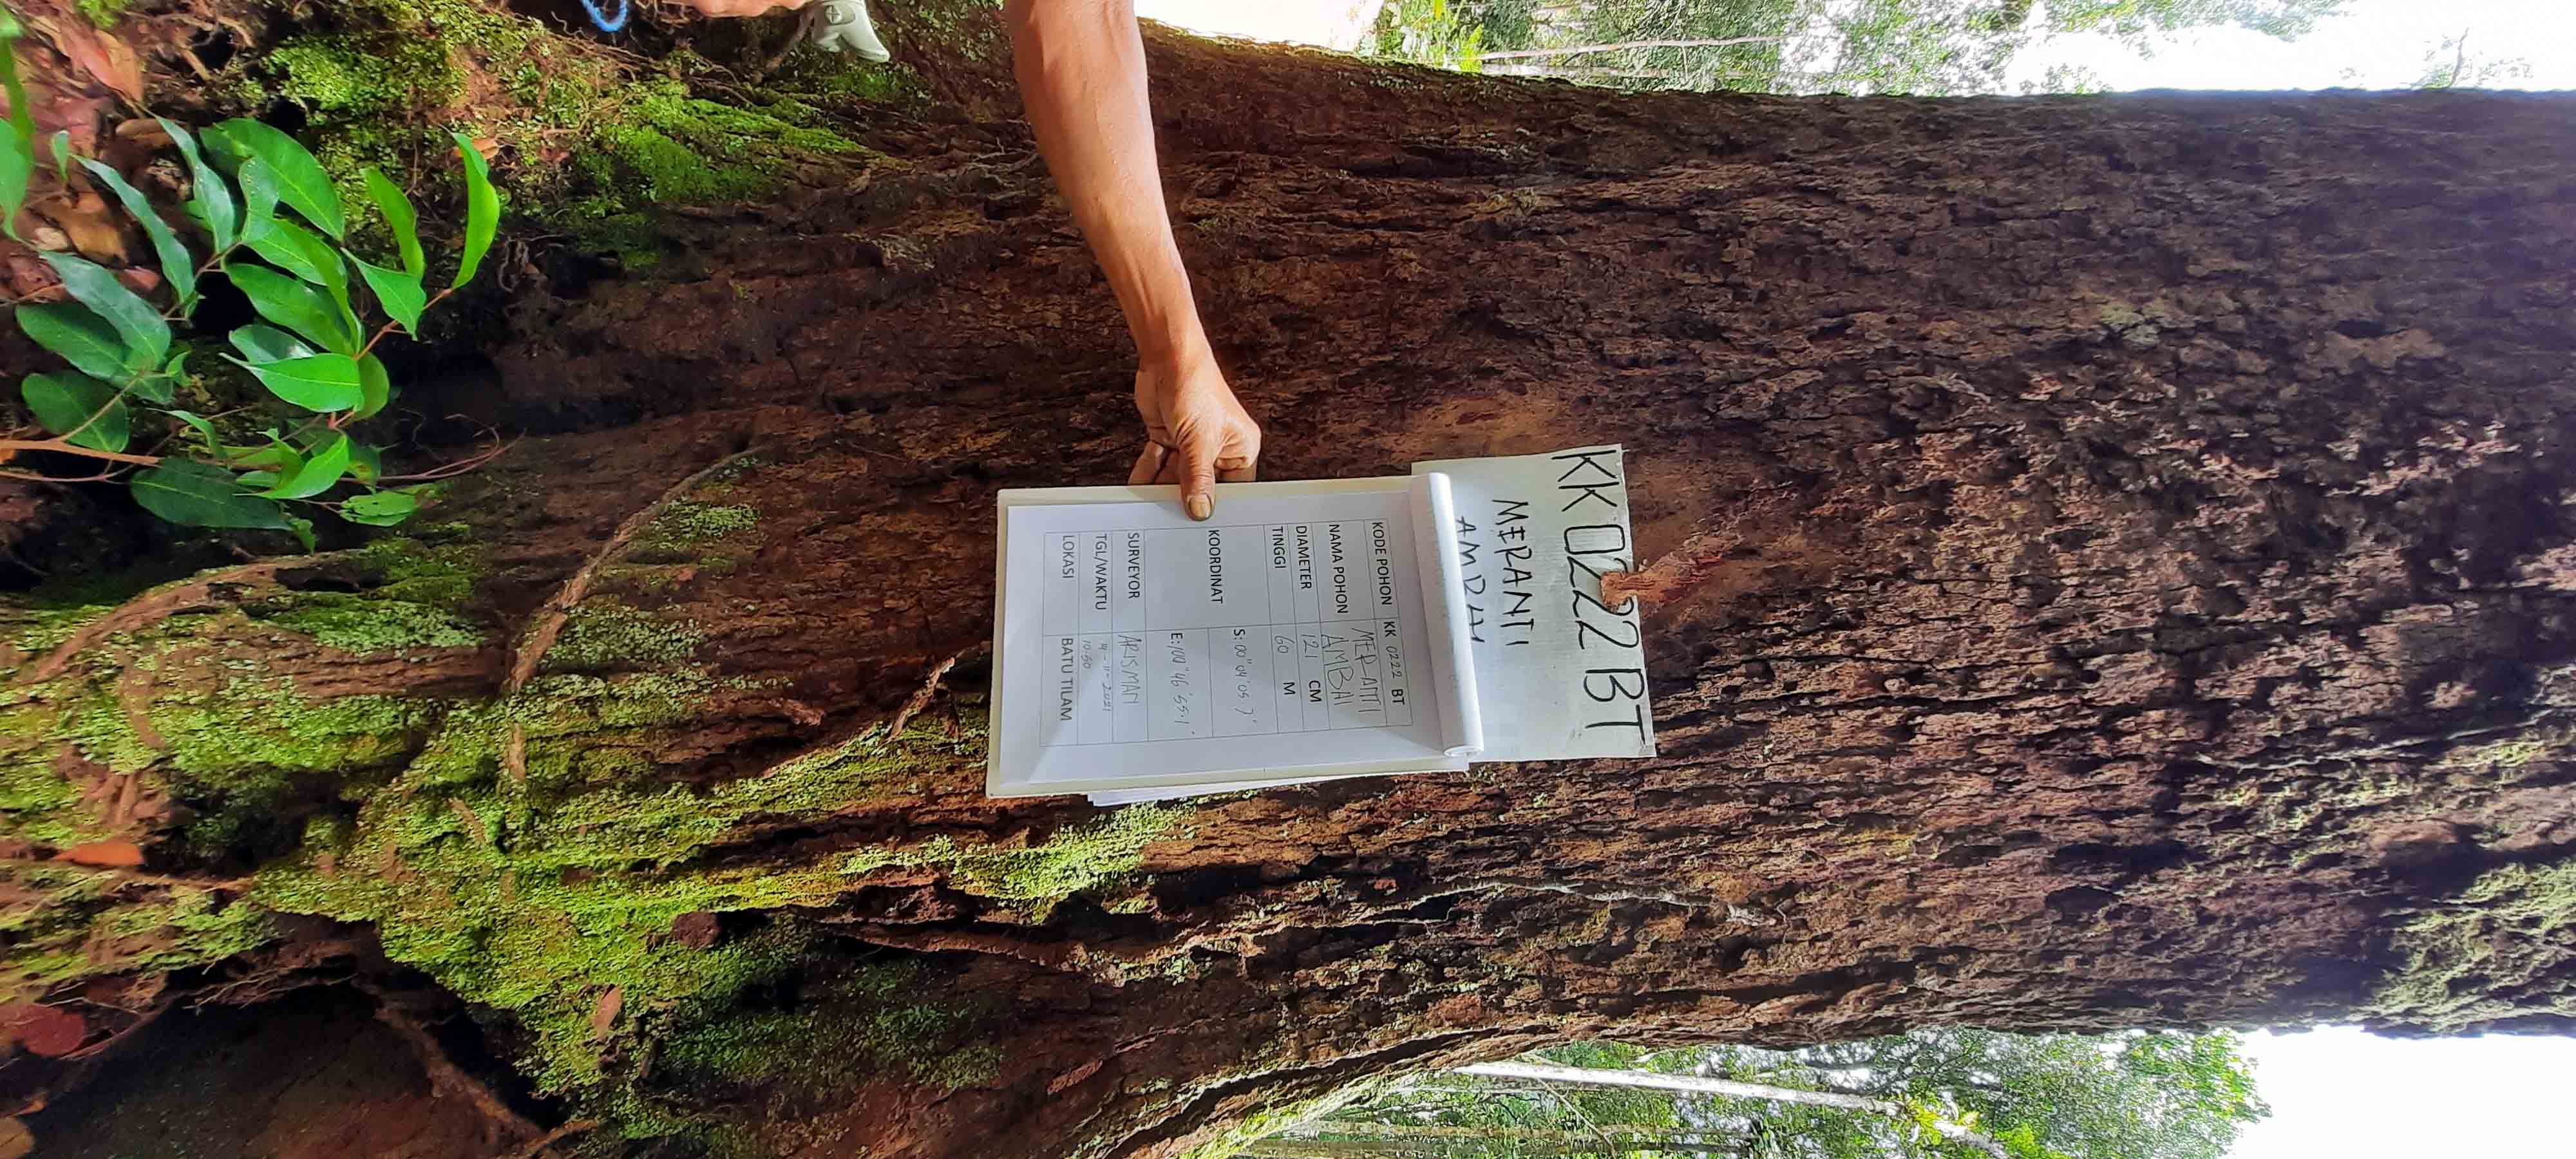 KK 0222 BT
MERANTI
AMBAI
KODE POHON KK 0222 BT
NAMA POHON MERANTI AMBAI
DIAMETER 121 CM
TINGGI 60 M
KOORDINAT S: 00° 04' 05.7"
E: 100° 46' 55.1"
SURVEYOR ARISMAN
TGL/WAKTU 19-11-2021
10:30
LOKASI BATU TILAM